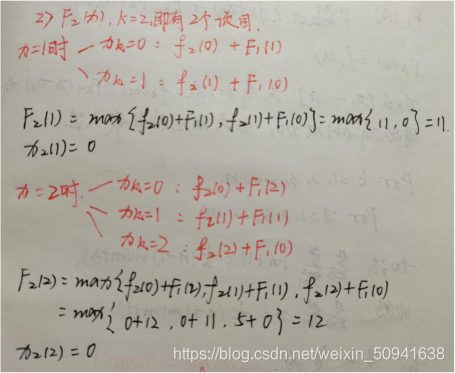 2> F₂(x), k=2,即有2个项目.
x=1时 xk=0: f₂(0) + F₁(1)
xk=1: f₂(1) + F₁(0)
F₂(1) = max{f₂(0)+F₁(1), f₂(1)+F₁(0)} = max{11, 0} = 11.
x₂(1) = 0
x=2时. xk=0: f₂(0)+F₁(2)
xk=1: f₂(1)+F₁(1)
xk=2: f₂(2)+F₁(0)
F₂(2) = max{f₂(0)+F₁(2), f₂(1)+F₁(1), f₂(2)+F₁(0)
= max{ 0+12, 0+11, 5+0} = 12
x₂(2) = 0
https://blog.csdn.net/weixin_50941638